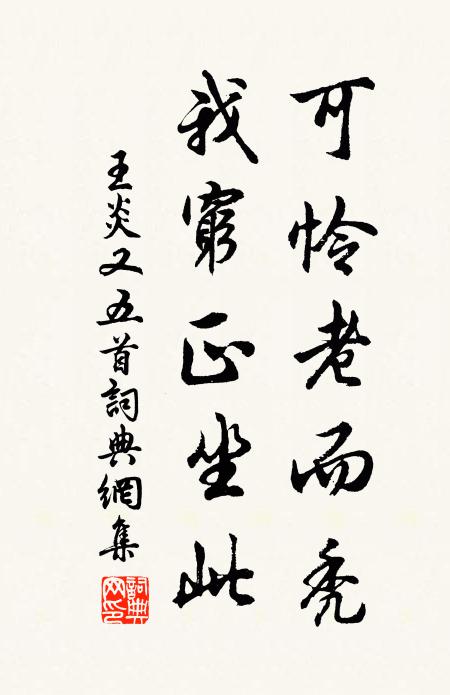 可怜老而秃
我窮正坐此
王炎又五首詞典網集
詞典網印